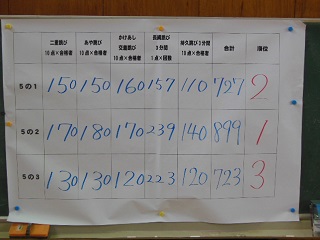 二重跳び 10点×合格者 あや跳び 10点×合格者 かけあし交差跳び 10点×合格者 長縄跳び 3分間 1点×回数 持久跳び3分間 10点×合格者 合計 順位
5の1 150 150 160 157 110 727 2
5の2 170 180 170 239 140 899 1
5の3 130 130 120 223 120 723 3